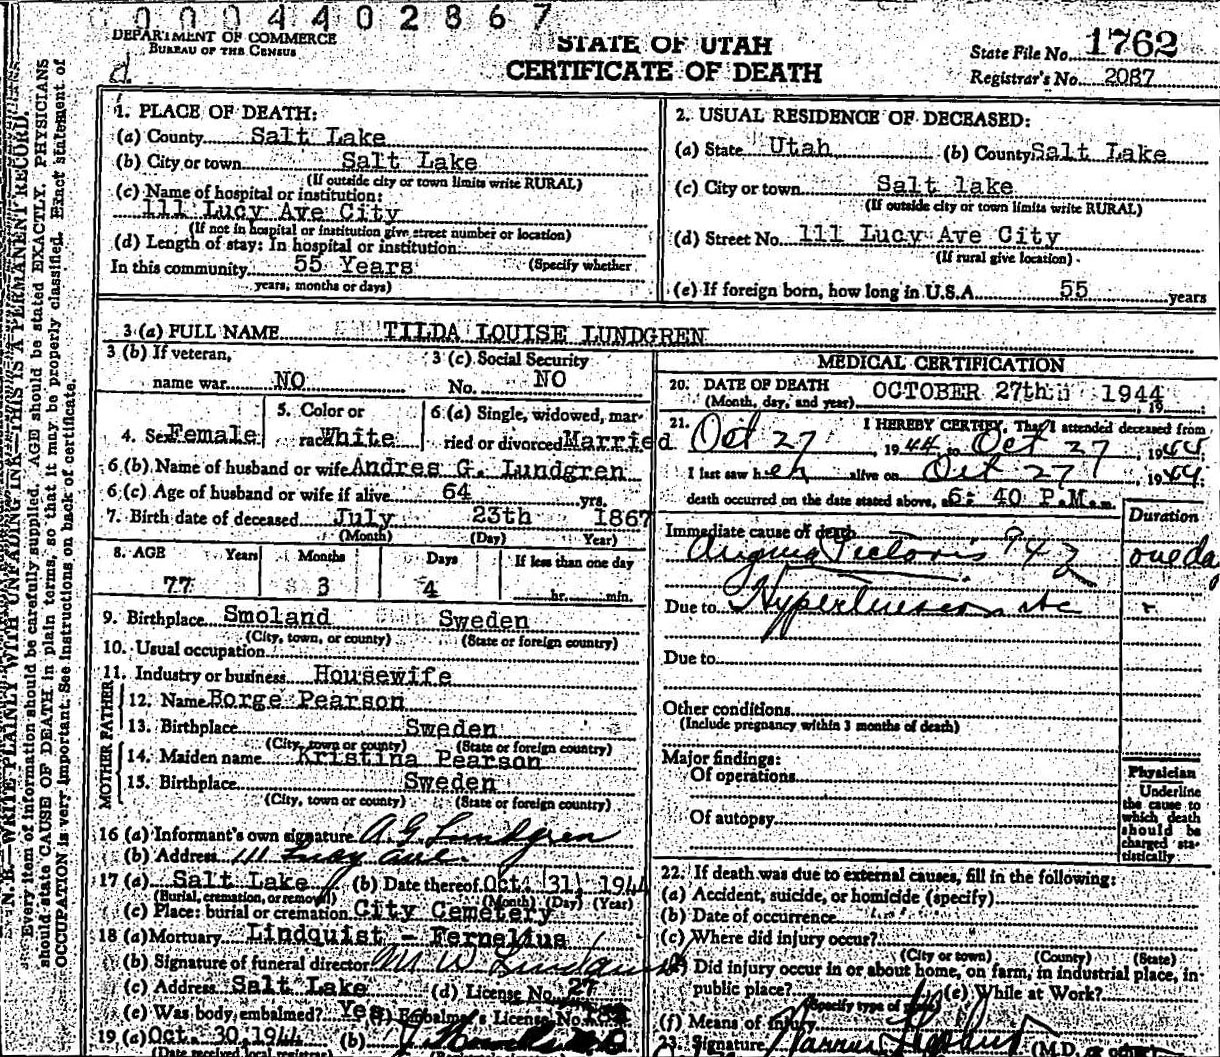 0004402867
DEPARTMENT OF COMMERCE
BUREAU OF THE CENSUS
STATE OF UTAH
CERTIFICATE OF DEATH
State File No. 1762
Registrar's No. 2087
N. B.—WRITE PLAINLY, WITH UNFADING INK—THIS IS A PERMANENT RECORD.
Every item of information should be carefully supplied. AGE should be stated EXACTLY. PHYSICIANS
should state CAUSE OF DEATH in plain terms, so that it may be properly classified. Exact statement of
OCCUPATION is very important. See instructions on back of certificate.
1. PLACE OF DEATH:
(a) County Salt Lake
(b) City or town Salt Lake
(If outside city or town limits write RURAL)
(c) Name of hospital or institution:
111 Lucy Ave City
(If not in hospital or institution give street number or location)
(d) Length of stay: In hospital or institution
In this community 55 Years (Specify whether
years, months or days)
2. USUAL RESIDENCE OF DECEASED:
(a) State Utah (b) County Salt Lake
(c) City or town Salt lake
(If outside city or town limits write RURAL)
(d) Street No. 111 Lucy Ave City
(If rural give location)
(e) If foreign born, how long in U.S.A. 55 years
3 (a) FULL NAME TILDA LOUISE LUNDGREN
3 (b) If veteran,
name war NO
3 (c) Social Security
No. NO
4. Sex Female
5. Color or
race White
6 (a) Single, widowed, mar-
ried or divorced Married
6 (b) Name of husband or wife Andres G. Lundgren
6 (c) Age of husband or wife if alive 64 yrs.
7. Birth date of deceased July 23th 1867
(Month) (Day) Year)
8. AGE Years Months Days If less than one day
77 3 4 hr. min.
9. Birthplace Smoland Sweden
(City, town, or county) (State or foreign country)
10. Usual occupation
11. Industry or business Housewife
FATHER
12. Name Borge Pearson
13. Birthplace Sweden
(City, town or county) (State or foreign country)
MOTHER
14. Maiden name Kristina Pearson
15. Birthplace Sweden
(City, town or county) (State or foreign country)
16 (a) Informant's own signature A. G. Lundgren
(b) Address 111 Lucy Ave.
17 (a) Salt Lake (b) Date thereof Oct. 31, 1944
(Burial, cremation, or removal) (Month) (Day) (Year)
(c) Place: burial or cremation City Cemetery
18 (a) Mortuary Lindquist - Fernelius
(b) Signature of funeral director M W Lindquist
(c) Address Salt Lake (d) License No. 27
(e) Was body embalmed? Yes (f) Embalmer's License No.
19 (a) Oct. 30, 1944 (b)
(Date received local registrar)
MEDICAL CERTIFICATION
20. DATE OF DEATH OCTOBER 27th 1944
(Month, day, and year) , 19
21. I HEREBY CERTIFY, That I attended deceased from
Oct 27, 1944 to Oct 27, 1944
I last saw her alive on Oct 27, 1944;
death occurred on the date stated above, at 6: 40 P.M. m.
Duration
Immediate cause of death
Angina Pectoris 94 2 one day
Due to Hypertension etc
Due to
Other conditions
(Include pregnancy within 3 months of death)
Major findings:
Of operations
Of autopsy
Physician
Underline
the cause to
which death
should be
charged sta-
tistically
22. If death was due to external causes, fill in the following:
(a) Accident, suicide, or homicide (specify)
(b) Date of occurrence
(c) Where did injury occur?
(City or town) (County) (State)
(d) Did injury occur in or about home, on farm, in industrial place, in
public place? (e) While at Work?
(Specify type of place)
(f) Means of injury
23. Signature (M.D. or other)